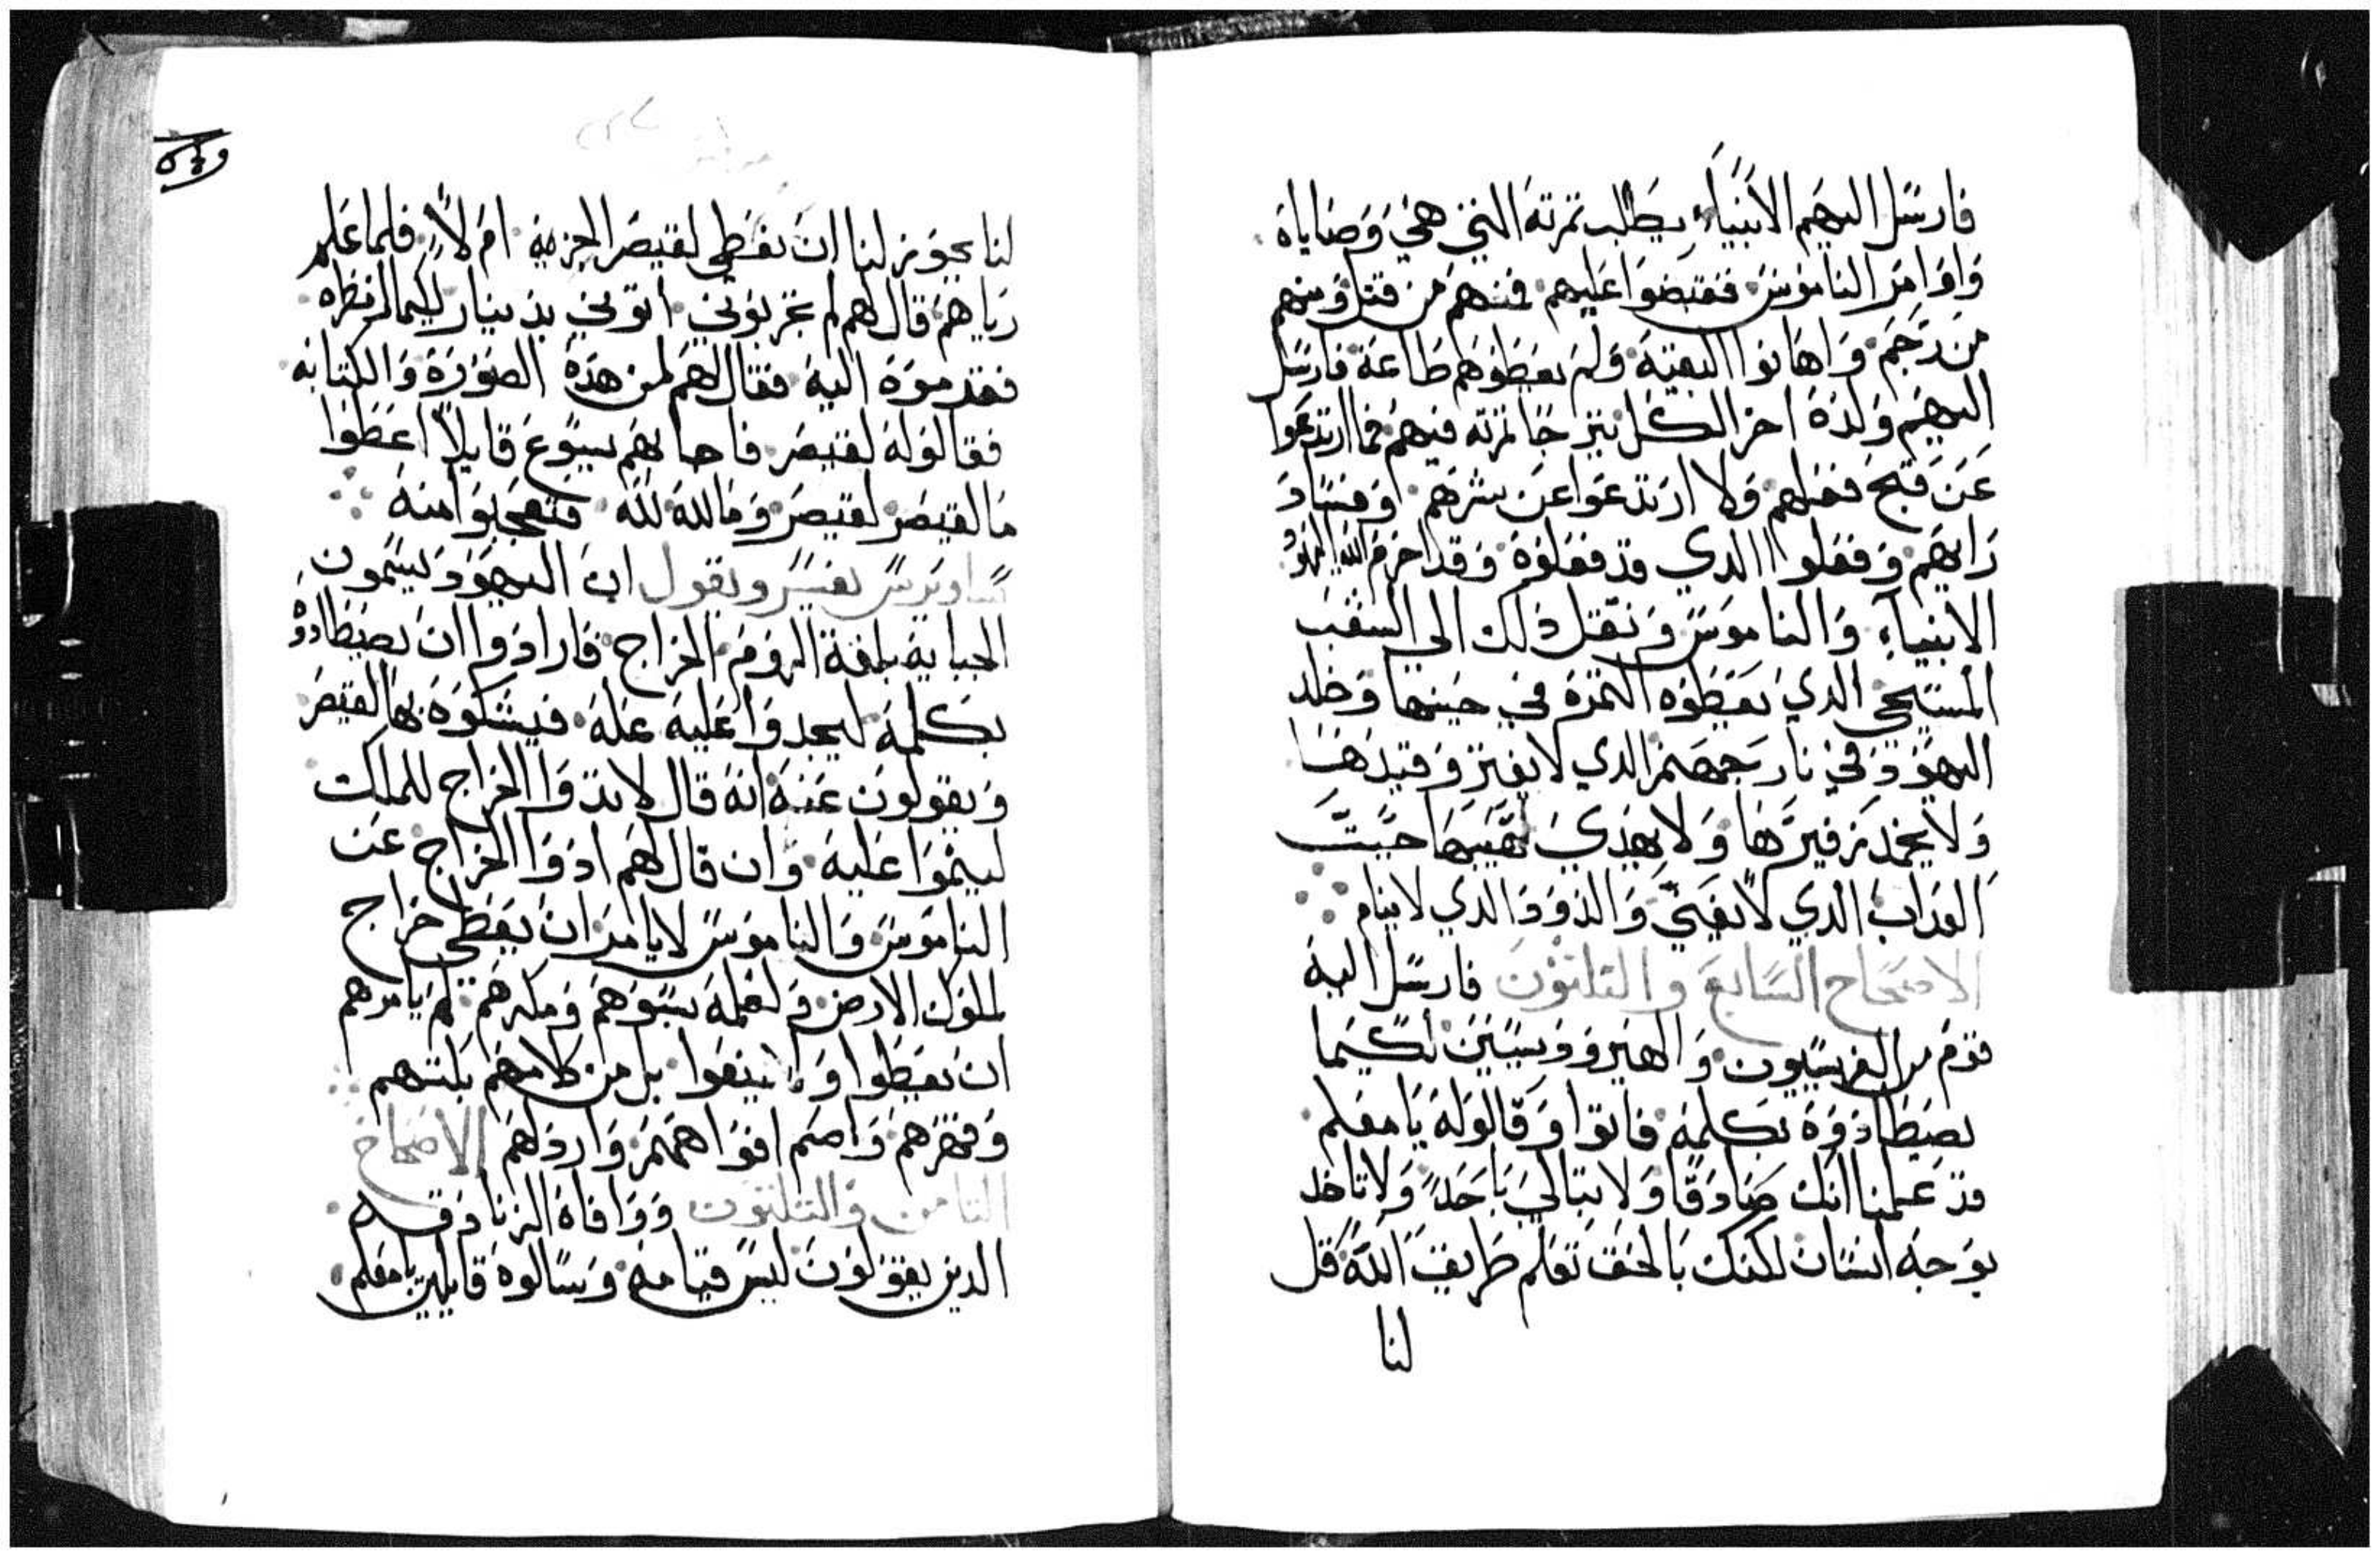 فارسل اليهم الانبياء يطلب تمرته التي هي وصاياه
واوامر الناموس فقبضوا عليهم فمنهم من قتل ومنهم
من رجم واهانوا البقية ولم يعطوهم طاعة فارسل
اليهم ولده اخر الكل تمرته فيهم فما ارتدعوا
عن قبح فعلهم ولا ارتدعوا عن شرهم وفساد
رايهم وفعلوا الدي قد فعلوه وقد احرم الله اليهود
الانبياء والناموس ونقل دلك الي الشعب
المسيحي الدي يعطوه التمرة في حينها وخلد
اليهود في نار جهنم الدي لا يفتر وقيدها
ولا يخمد زفيرها ولا يهدي لهيبها حيت
العداب الدي لا يفني والدود الدي لا ينام
الاصحاح السابع والتلتون فارسل اليه
قوم من الفريسيون والهيرودسيين لكيما
يصطادوه بكلمه فاتوا وقالوله يا معلم
قد علمنا انك صادقا ولا تبالي باحد ولا تاخد
بوجه انسان لكنك بالحق تعلم طريق الله قل
لنا
لنا يجوز لنا ان نعطي لقيصر الجزيه ام لا فلما علم
رياهم قال لهم لم تجربوني اتوني بدينار لكيما انظره
فقدموه اليه فقال لهم لمن هده الصوره والكتابه
فقالوله لقيصر فاجابهم يسوع قايلا اعطوا
ما لقيصر لقيصر وما لله لله فتعجبوا منه
يفسر ويقول ان اليهود يسمون
الجبايه بلغة الروم الخراج فارادوا ان يصطادوه
بكلمه ليجدوا عليه عله فيشكوه بها لقيصر
ويقولون عنه انه قال لا تدوا الخراج للملك
لينموا عليه وان قال لهم ادوا الخراج عن
الناموس والناموس لا يامر ان يعطي خراج
لملوك الارض ولعلمه بسوهم ومكرهم لم يامرهم
ان يعطوا بل من كلامهم بكتهم
وقهرهم واصم افواههم واردلهم الاصحاح
التامن والتلتون ووافاه الزنادقه
الدين يقولون ليس قيامه وسالوه قايلين يا معلم